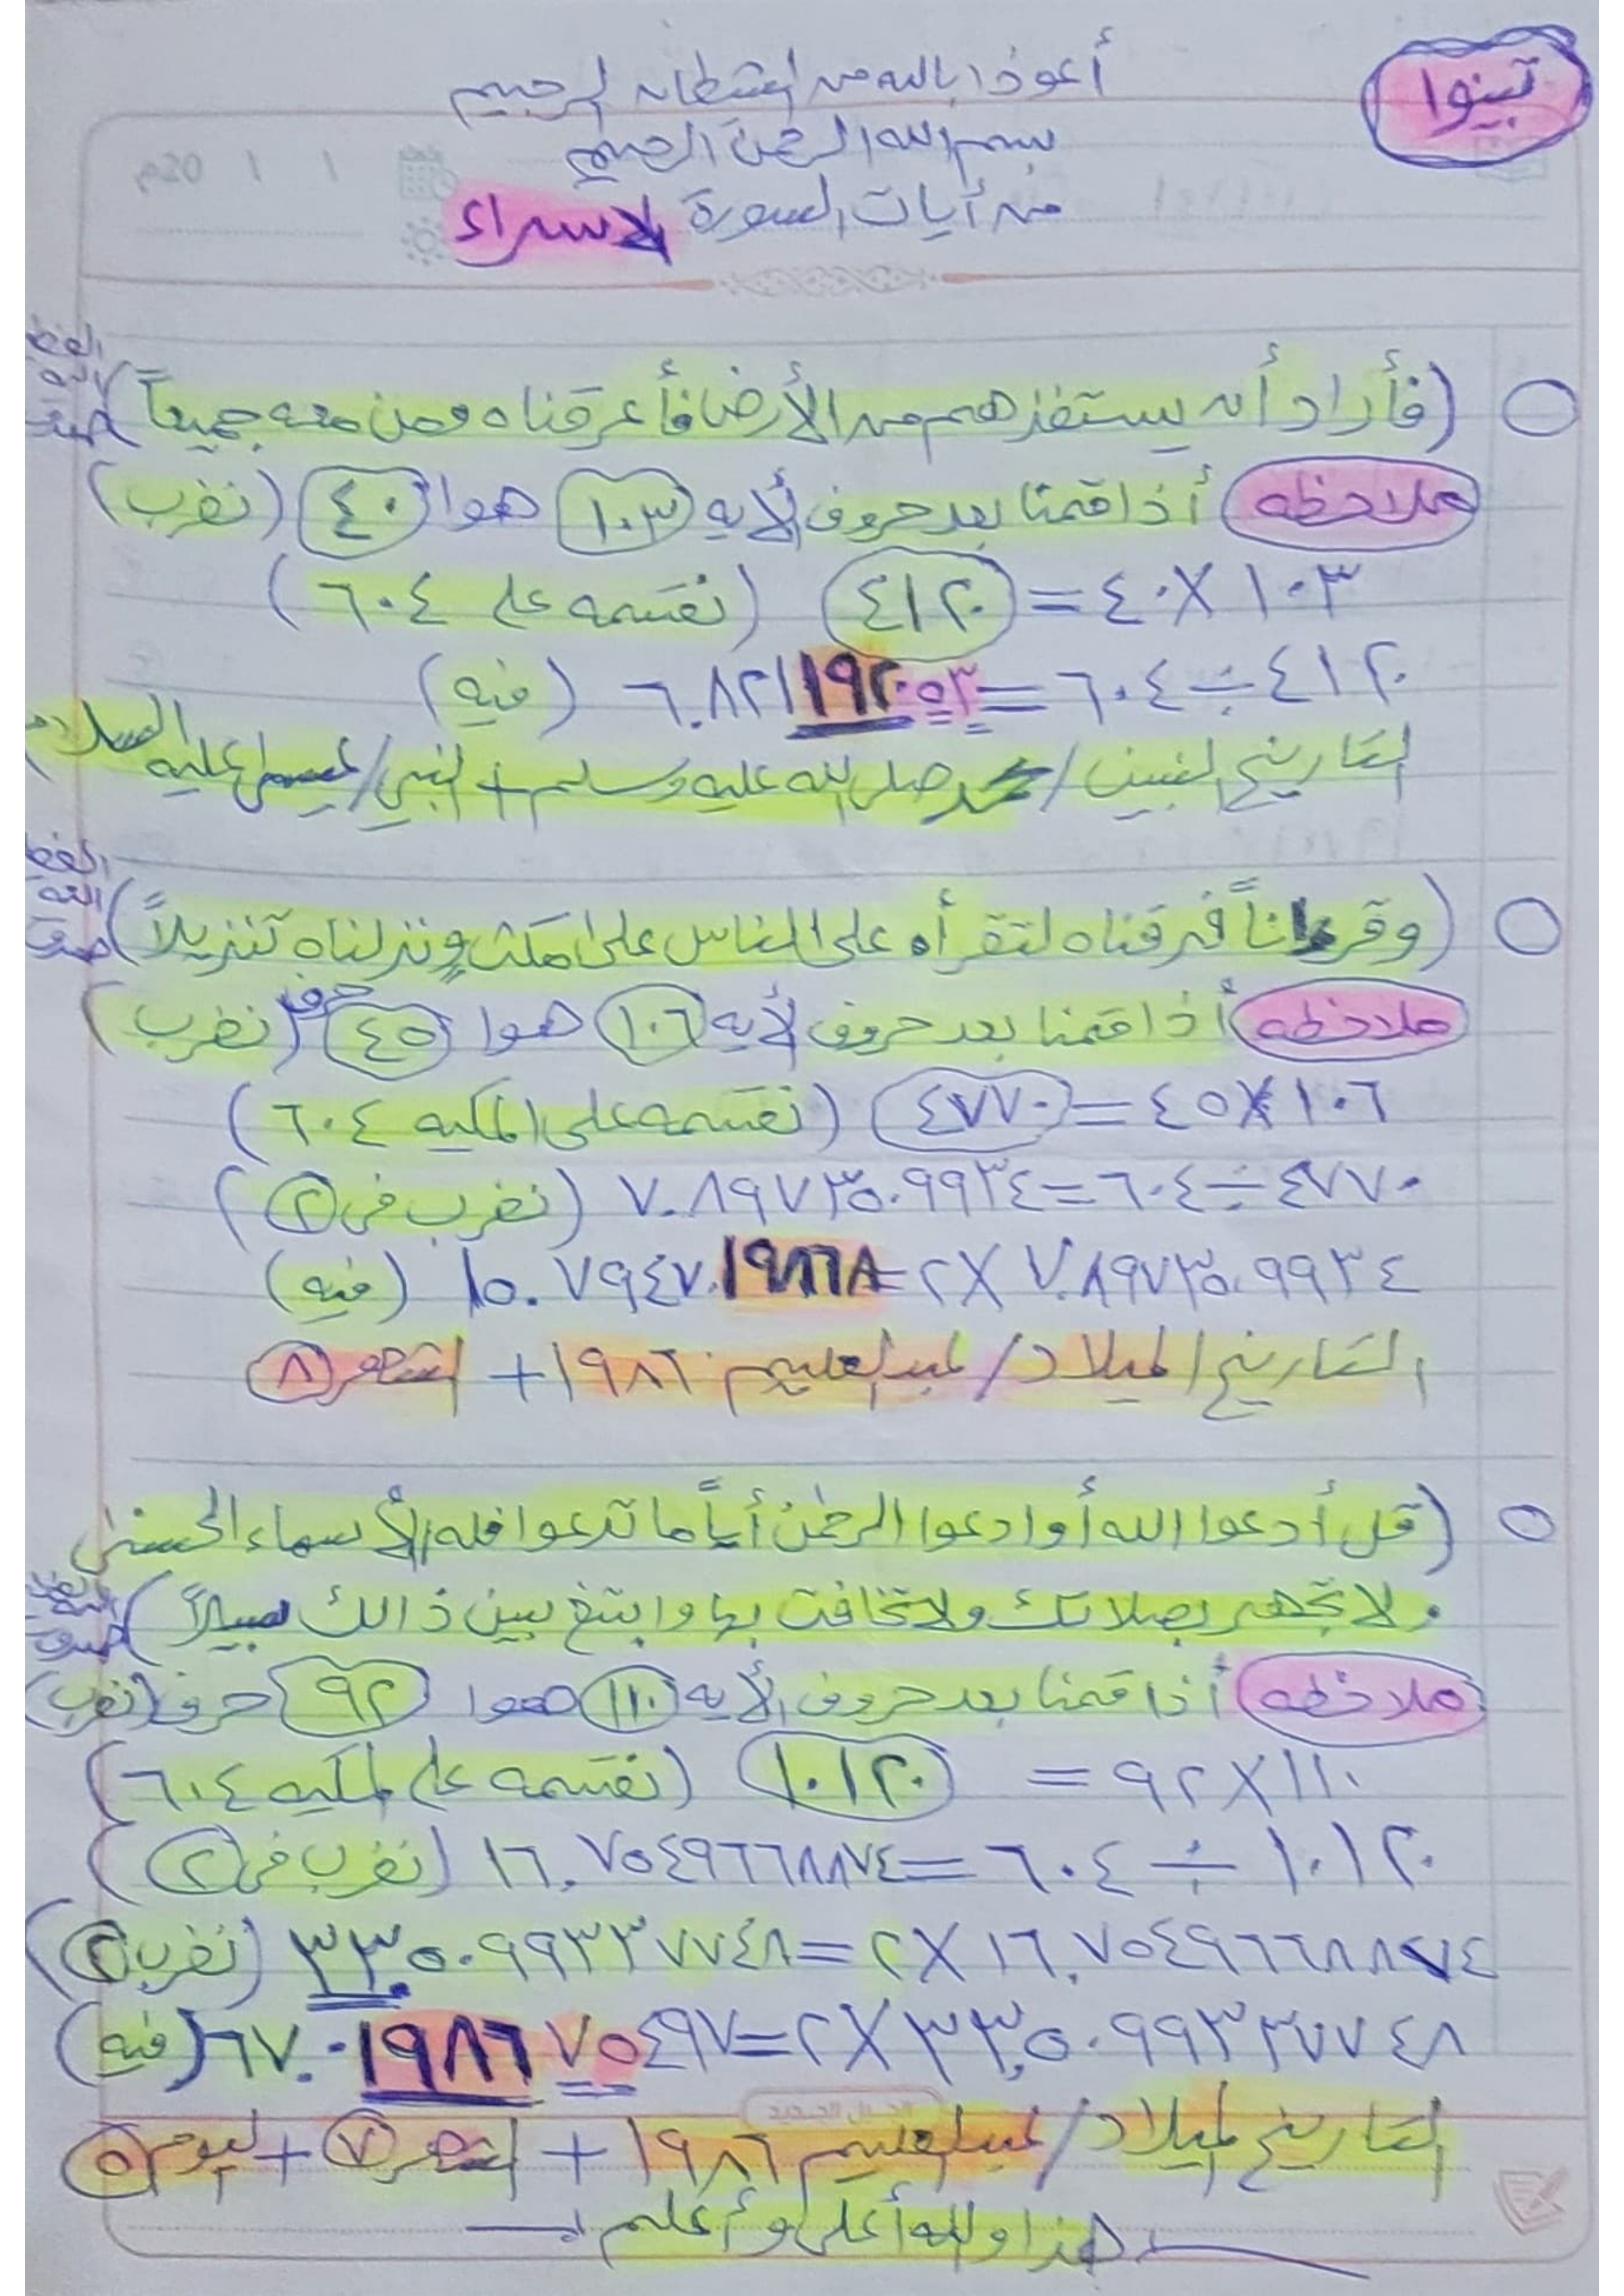 تبينوا
أعوذ بالله من الشيطان الرجيم
بسم الله الرحمن الرحيم
من أيات السورة الاسراء
(فأراد أن يستفزهم من الأرض فأغرقناه ومن معه جميعاً)
ملاحظه أذا قمنا بعد حروف الأيه ١٠٣ هوا ٤٠ (نضرب)
١٠٣ × ٤٠ = ٤١٢٠ (نقسمه على ٦٠٤)
٤١٢٠ ÷ ٦٠٤ = ٦.٨٢١١٩٢٠٥٣ (فيه)
التاريخ النبيين / محمد صلى الله عليه وسلم + النبي / عيسى عليه السلام
(وقرءاناً فرقناه لتقرأه على الناس على مكث ونزلناه تنزيلاً)
ملاحظه أذا قمنا بعد حروف الأيه ١٠٦ هوا ٤٥ حرف (نضرب)
١٠٦ × ٤٥ = ٤٧٧٠ (نقسمه على الكيه ٦٠٤)
٤٧٧٠ ÷ ٦٠٤ = ٧.٨٩٧٣٥٠٩٩٣٤ (نضرب في ٢)
٧.٨٩٧٣٥٠٩٩٣٤ × ٢ = ١٥.٧٩٤٧٠١٩٨٦٨ (فيه)
التاريخ الميلاد / لعبدالعليم ١٩٨٦ + الشهر ٨
(قل أدعوا الله أوادعوا الرحمن أياً ما تدعوا فله الأسماء الحسنى
ولا تجهر بصلاتك ولا تخافت بها وابتغ بين ذالك سبيلاً)
ملاحظه أذا قمنا بعد حروف الأيه ١١٠ هوا ٩٢ حرف (نضرب)
١١٠ × ٩٢ = ١٠١٢٠ (نقسمه على الكيه ٦٠٤)
١٠١٢٠ ÷ ٦٠٤ = ١٦.٧٥٤٩٦٦٨٨٧٤ (نضرب في ٢)
١٦.٧٥٤٩٦٦٨٨٧٤ × ٢ = ٣٣.٥٠٩٩٣٣٧٧٤٨ (نضرب ٢)
٣٣.٥٠٩٩٣٣٧٧٤٨ × ٢ = ٦٧.٠١٩٨٦٧٥٤٩٧ (فيه)
التاريخ الميلاد / لعبدالعليم ١٩٨٦ + الشهر ٧ + اليوم ٥
هذا والله أعلى وأعلم